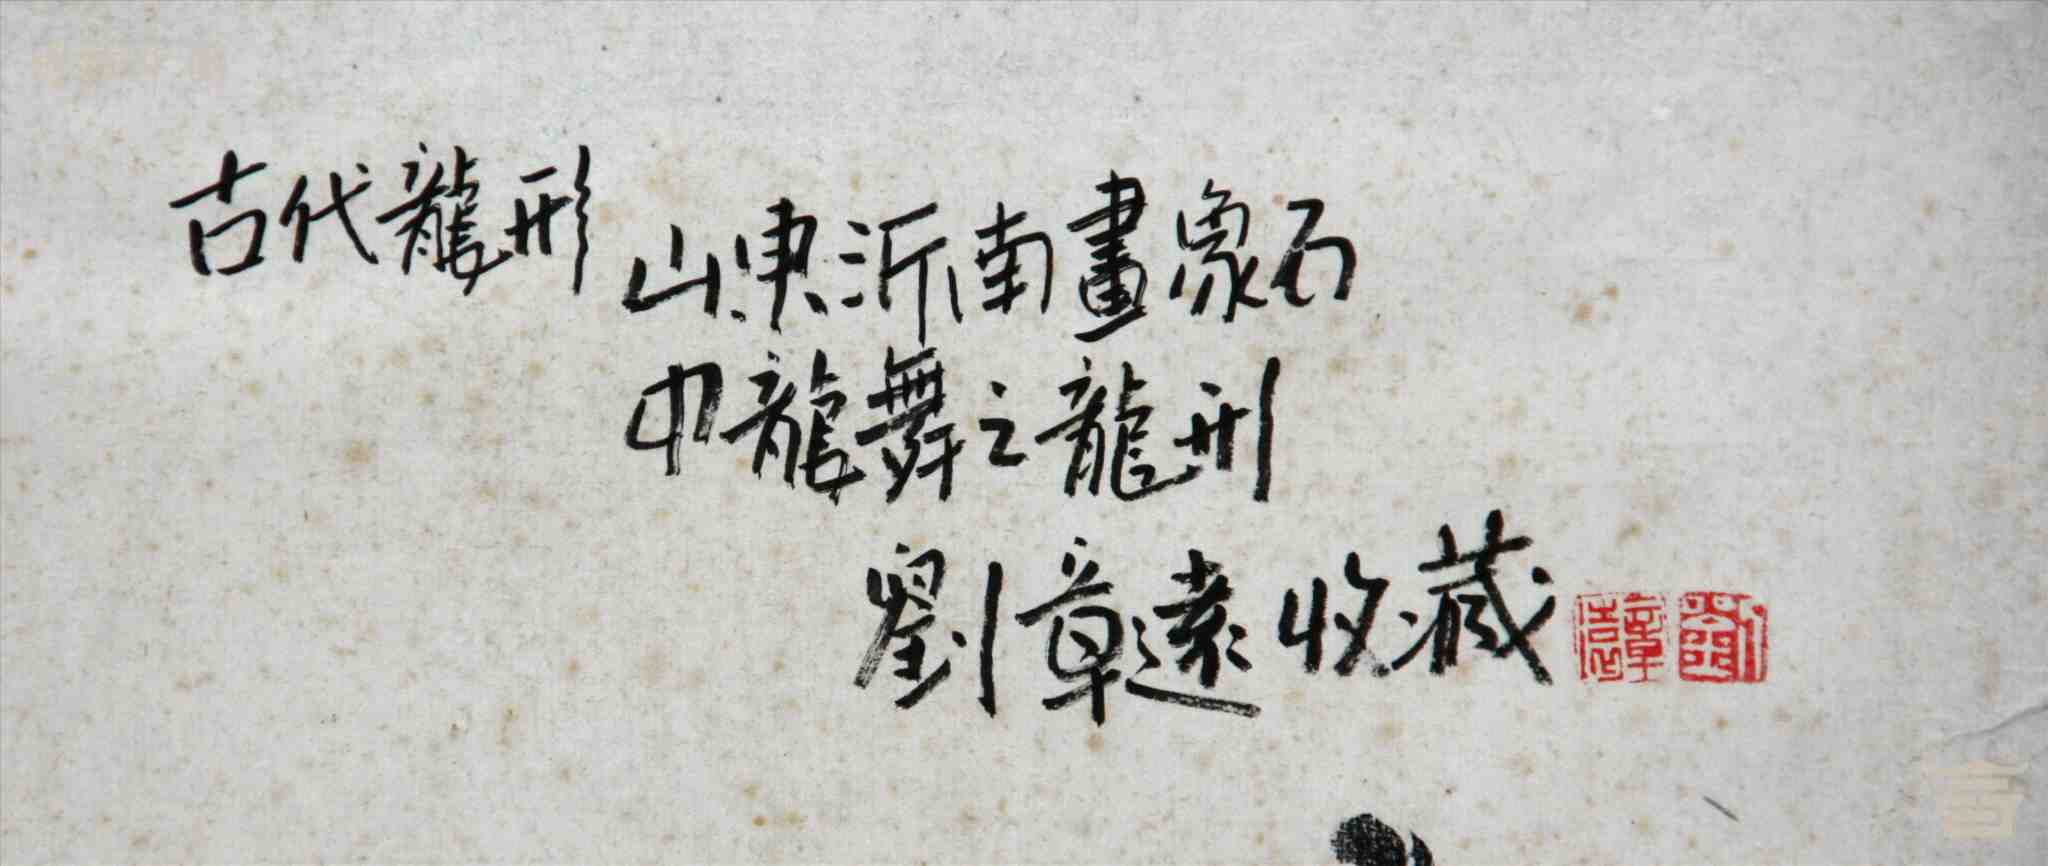 古代龍形
山東沂南畫象石
中龍舞之龍刑
劉章遠收藏